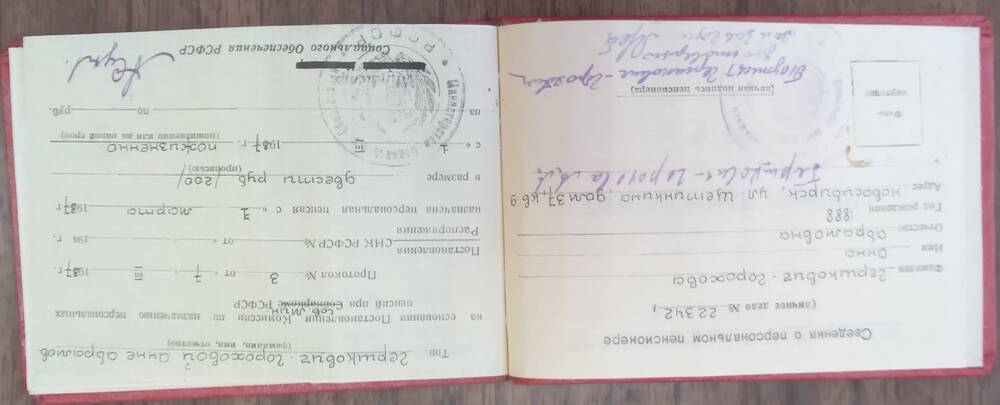 Сведения о персональном пенсионере
(личное дело № 22342,)
Фамилия Гершкович-Горохова
Имя Анна
Отчество Абрамовна
Год рождения 1888
Адрес Новосибирск, ул Щетинкина, дом 37, кв 9
Гершкович-Горохова
Фото-
карточка
(личная подпись пенсионера)
Тов. Гершкович-Гороховой Анне Абрамов.
(фамилия, имя, отчество)
на основании Постановления Комиссии по назначению персональных
Сов. Мин.
пенсий при Совнаркоме РСФСР
Протокол № 3 от « 7 » III 1937 г.
Постановления
СНК РСФСР № от « 194 г.
Распоряжения
назначена персональная пенсия с « 1 марта 1937 г
в размере двести руб /200/
(прописью)
с « 1 III 1937 г. пожизненно
(пожизненно или на какой срок)
на по руб.
Министр
Социального Обеспечения РСФСР
Министерство
РСФСР